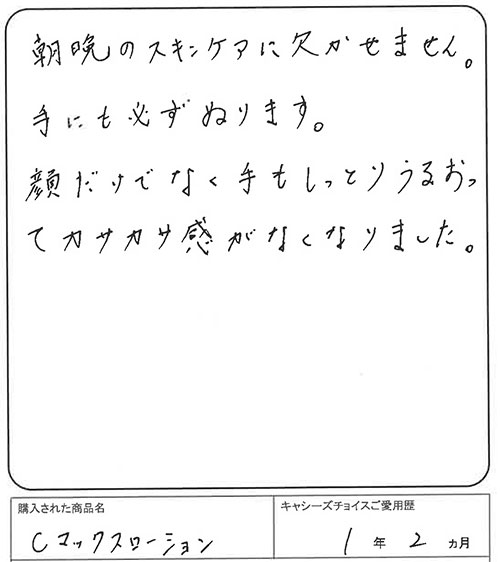 朝晩のスキンケアに欠かせません。
手にも必ずぬります。
顔だけでなく手もしっとりうるおっ
てカサカサ感がなくなりました。
購入された商品名
キャシーズチョイスご愛用歴
Cマックスローション
1年2ヵ月